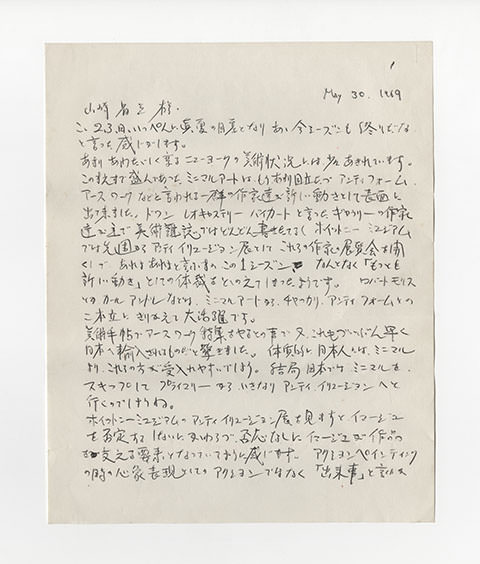 1
May 30. 1969
山崎省三様.
この2.3日、いっぺんに真夏の日差となり あゝ今シーズンも終りだな
と言った感じがします。
あまりあわたゞしく変るニューヨークの美術状況には少々あきれています。
この間まで盛んであった ミニマルアートは、もうあまり目立たづ アンティフォーム、
アースワークなどと言われる一群の作家達が新しい動きとして表面に
出て来ました。ドワン レオキャステリー バイカートと言ったギャラリーの作家
達が主で 美術雑誌ではどんどん書きたてるし ホイットニーミュジアム
では先週から アンティイリュージョン展として これらの作家の展覧会を開
くしで あれよあれよと言う間の この1シーズン で なんとなく「もっとも
新しい動き」としての体裁をとゝのえてしまったようです。 ロバートモリス
とか カールアンドレなどは、ミニマルアートから、ちゃっかり、アンティフォームとの
二本立に きりかえて 大活躍です。
美術手帖でアースワーク特集をやるとの事で 又、これもづいぶん早く
日本へ輸入されるものだと驚きました。 体質的に日本人には、ミニマル
より、これらの方が受入れやすいでしょう。 結局 日本では ミニマルを、
スキップして プライマリー から いきなり アンティイリュージョンへと
行くのでしょうね。
ホイットニーミュジアムのアンティイリュージョン展を見ますと、イリュージョン
を否定する しないにかゝわらづ、否応なしに イリュージョンが 作品
を支える要素となっているように感じます。 アクションペインティング
の時の心象表現としての アクションではなく「出来事」と言